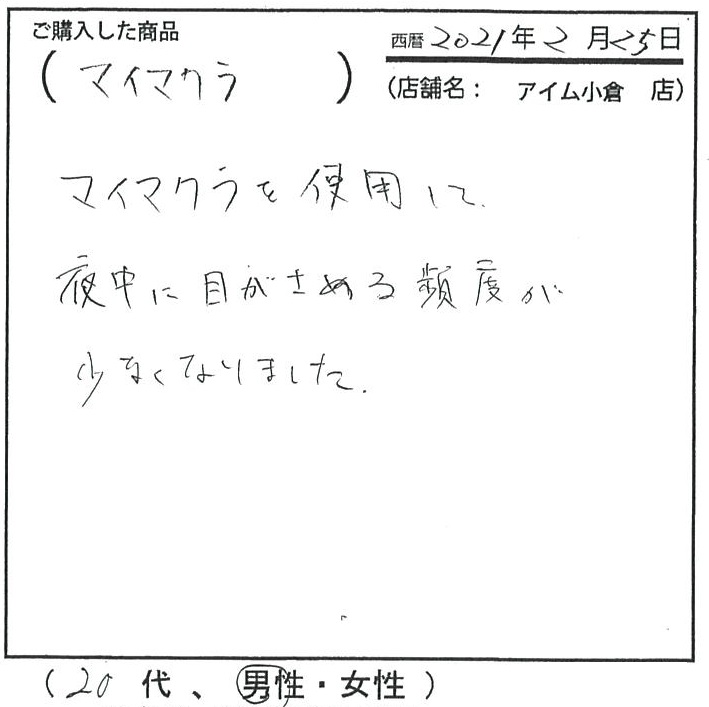 ご購入した商品
西暦 2021年 2月25日
(マイマクラ)
(店舗名： アイム小倉 店)
マイマクラを使用して、
夜中に目がさめる頻度が
少なくなりました。
(20代、男性・女性)